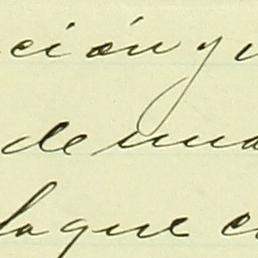 ción y
de una
la que